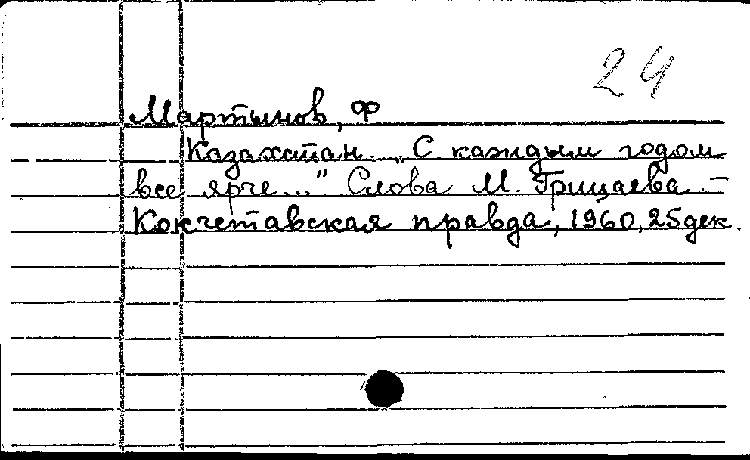 24
Мартынов, Ф
Казахстан. „С каждым годом
все ярче..." Слова М. Грицаева. –
Кокчетавская правда, 1960, 25 дек.